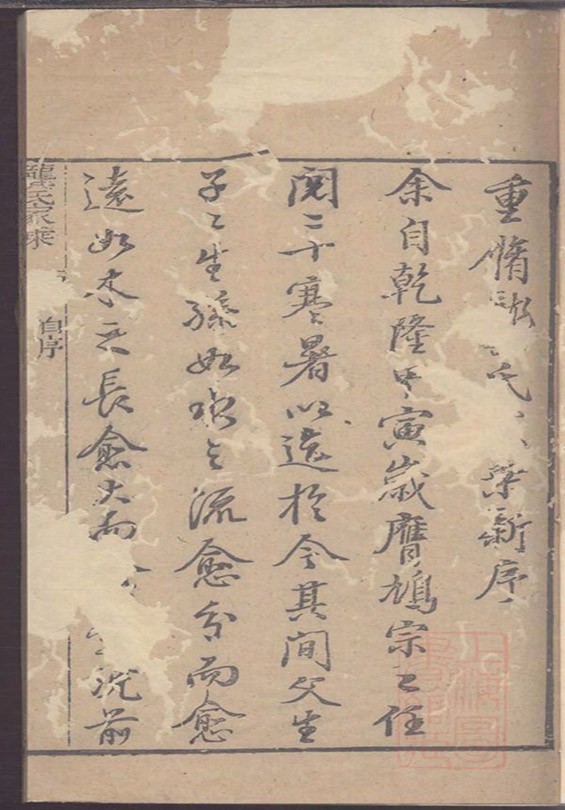 重脩氏乘新序
余自乾隆甲寅歲膺鳩宗之任
閱二十寒暑以迄於今其間父生
子〻生孫如水之流愈分而愈
遠如木之長愈大而況前
龍氏家乘
自序